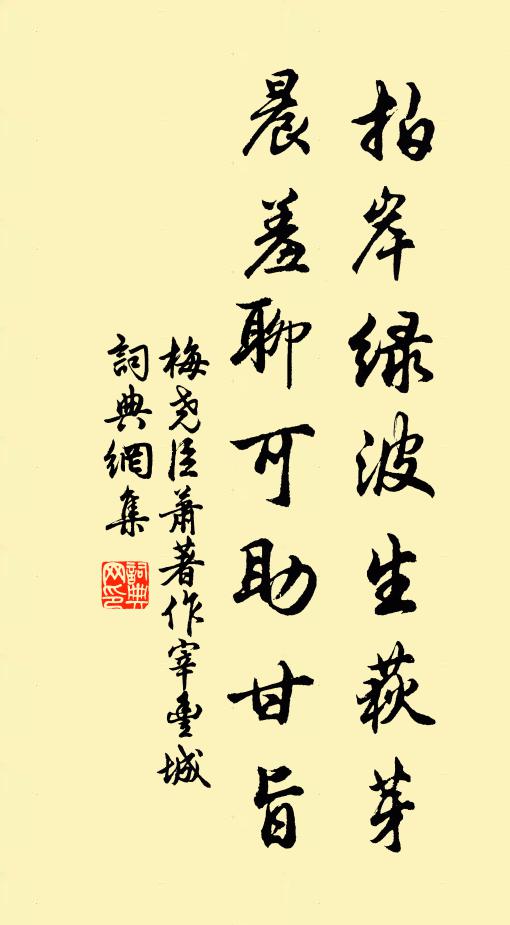 拍岸緑波生荻芽
晨羞聊可助甘旨
梅堯臣蕭著作宰豐城
詞典網集
詞典網印